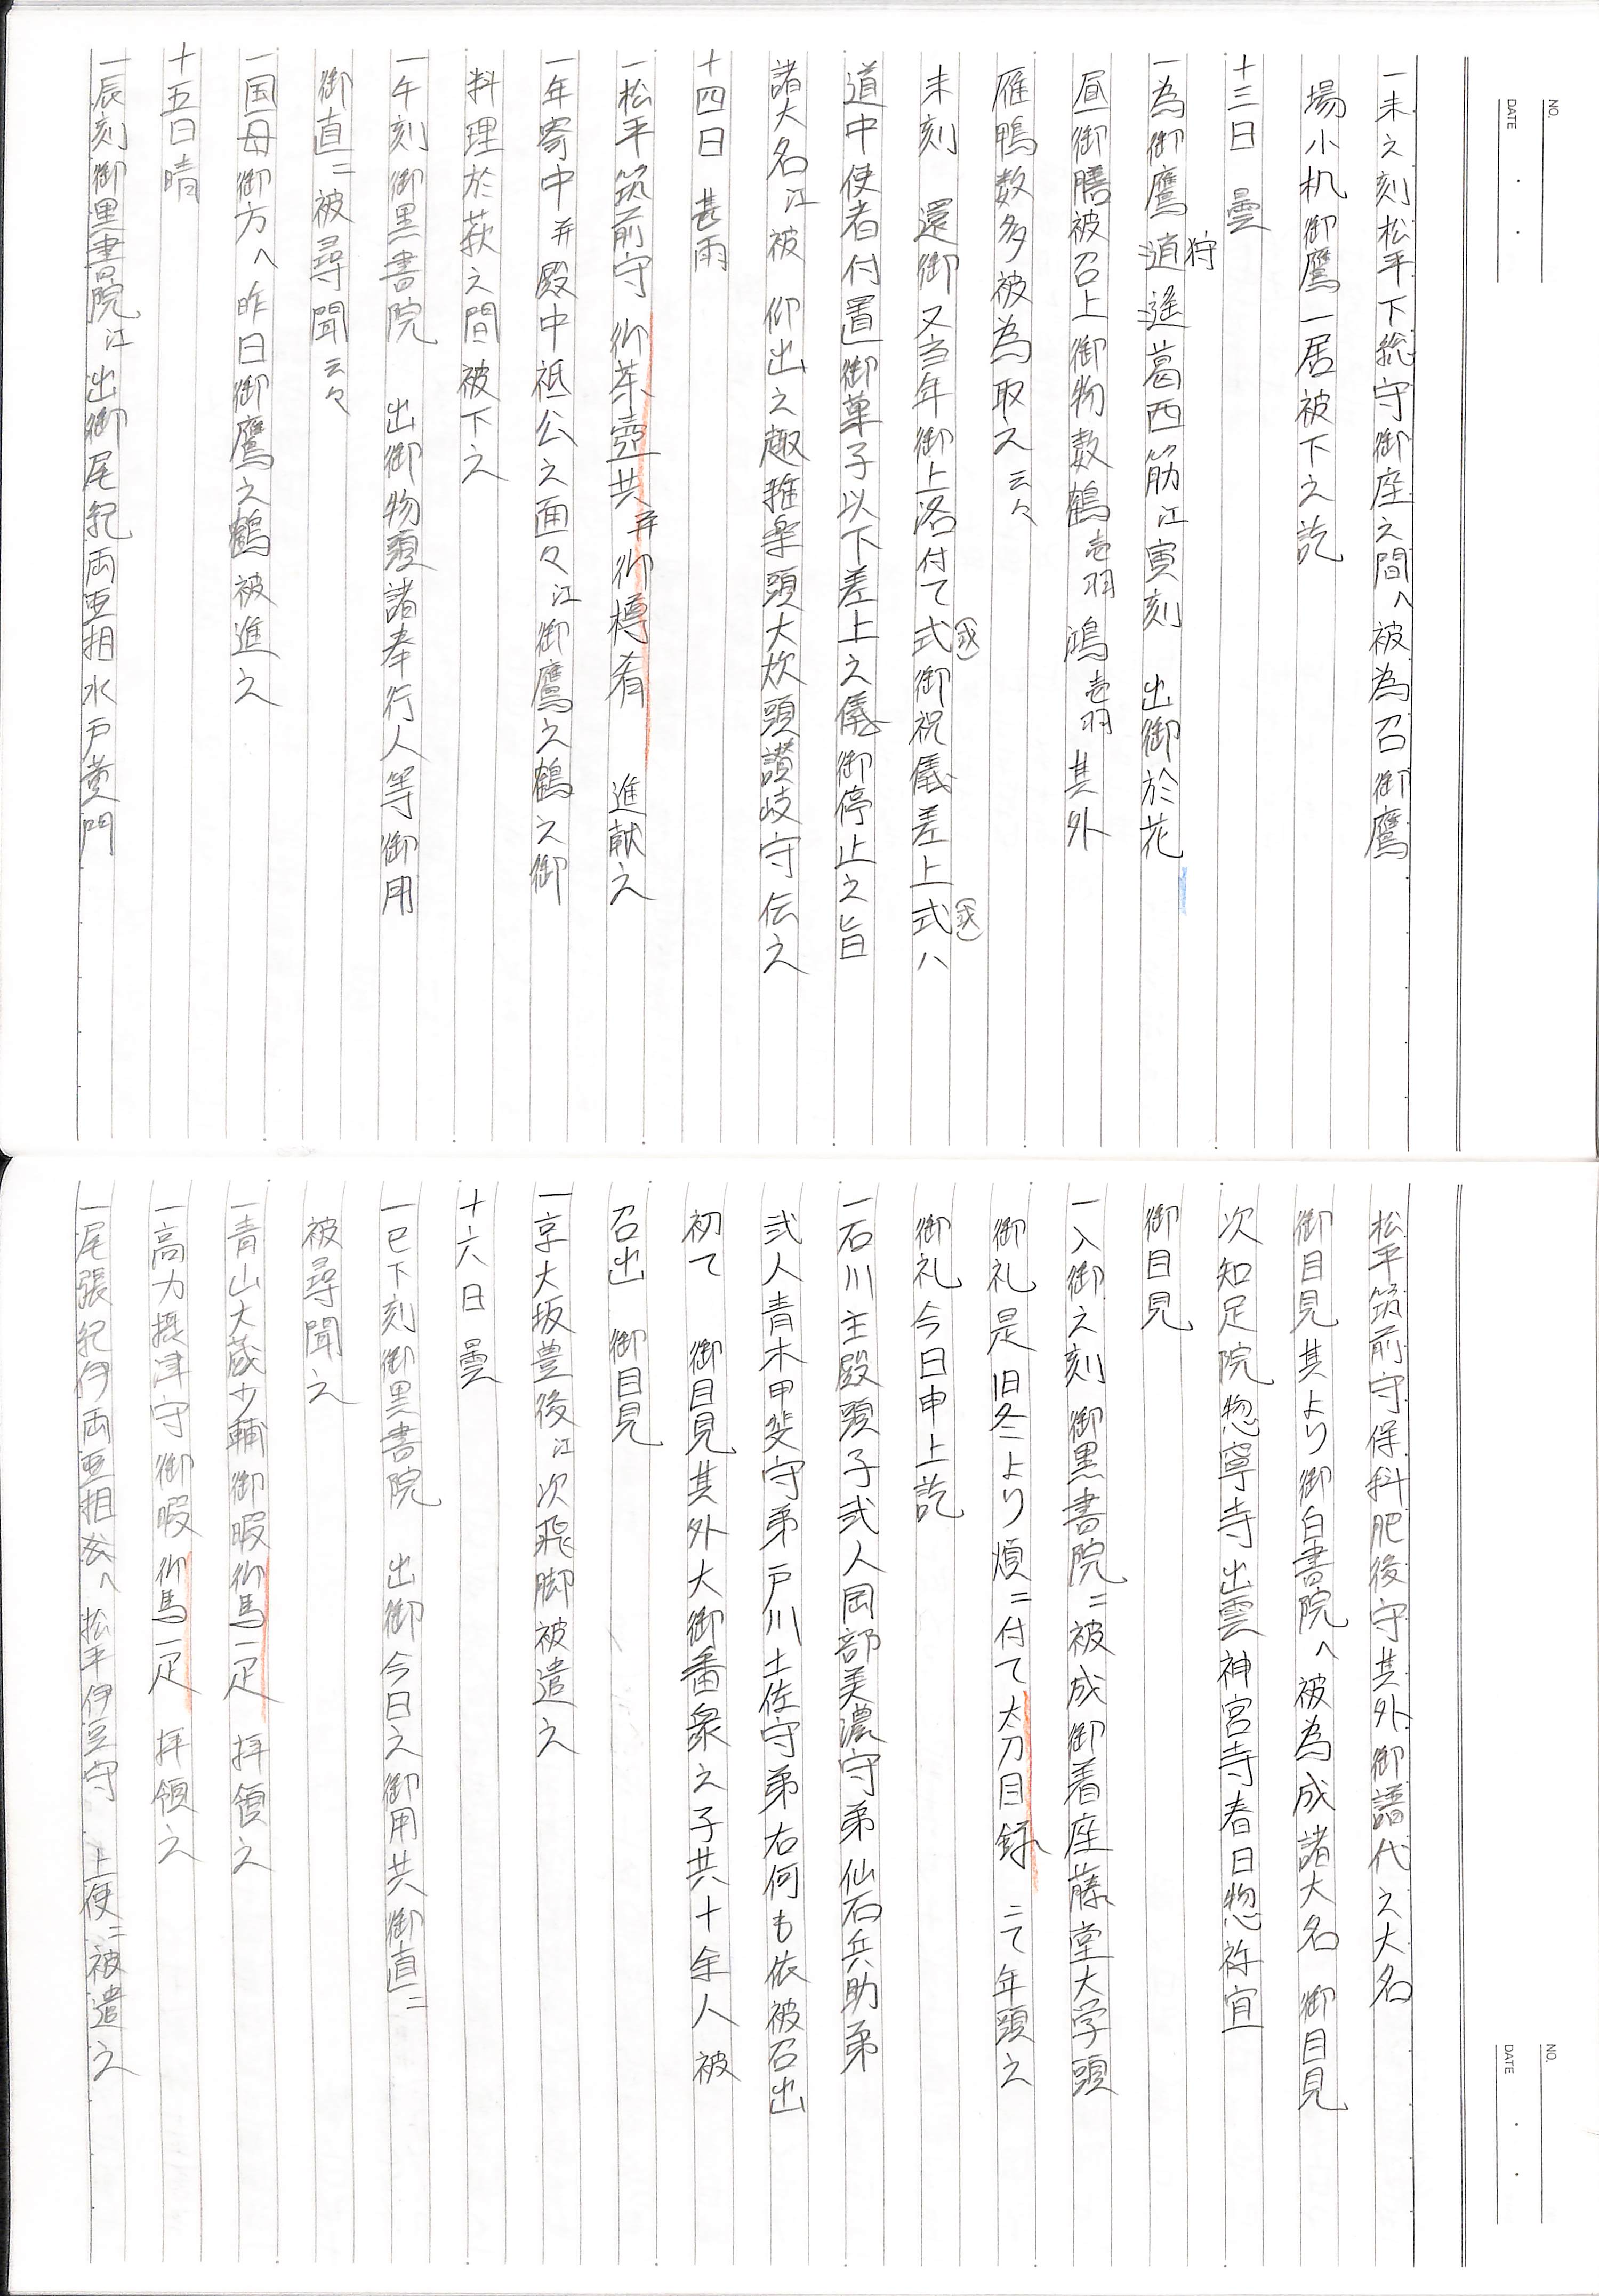 NO.
DATE
一未之刻松平下総守御座之間へ被為召御鷹
場小机御鷹一居被下之訖
十三日 曇
一為御鷹逍遥葛西筋江寅刻 出御於花
狩
昼御膳被召上御物数鶴壱羽鴻壱羽其外
雁鴨数多被為取之云々
未刻 還御又当年御上洛付て式御祝儀差上式ハ
(或)
(或)
道中使者付置御菓子以下差上之儀御停止之旨
諸大名江被 仰出之趣雅楽頭大炊頭讃岐守伝之
十四日 甚雨
一松平筑前守御茶壺共并御樽肴 進献之
一年寄中并殿中祗公之面々江御鷹之鶴之御
料理於萩之間被下之
一午刻御黒書院 出御物頭諸奉行人等御用
御直ニ被尋聞云々
一国母御方へ昨日御鷹之鶴被進之
十五日晴
一辰刻御黒書院江出御尾紀両亜相水戸黄門
NO.
DATE
松平筑前守保科肥後守其外御譜代之大名
御目見其より御白書院へ被為成諸大名 御目見
次知足院惣寧寺出雲神宮寺春日惣祢宜
御目見
一入御之刻御黒書院ニ被成御着座藤堂大学頭
御礼是旧冬より煩ニ付て太刀目録ニて年頭之
御礼今日申上訖
一石川主殿頭子弐人岡部美濃守弟仙石兵助弟
弐人青木甲斐守弟戸川土佐守弟右何も依被召出
初て 御目見其外大御番衆之子共十余人被
召出 御目見
一京大坂豊後江次飛脚被遣之
十六日 曇
一巳下刻御黒書院 出御今日之御用共御直ニ
被尋聞之
一青山大蔵少輔御暇御馬一疋 拝領之
一高力摂津守御暇御馬一疋 拝領之
一尾張紀伊両亜相公へ松平伊豆守 上使ニ被遣之